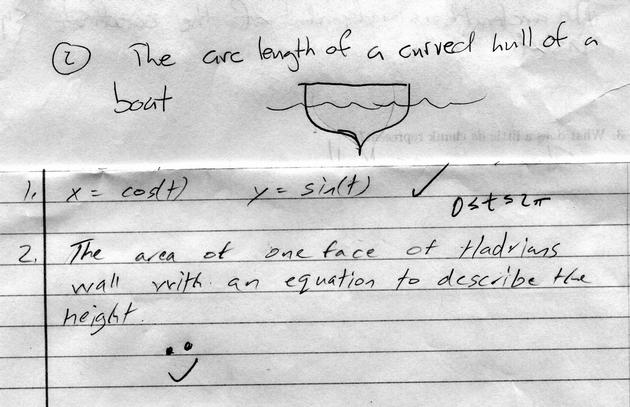 ② The arc length of a curved hull of a
boat
1. x = cos(t) y = sin(t) ✓ 0≤t≤2π
2. The area of one face of Hadrians
wall with an equation to describe the
height.